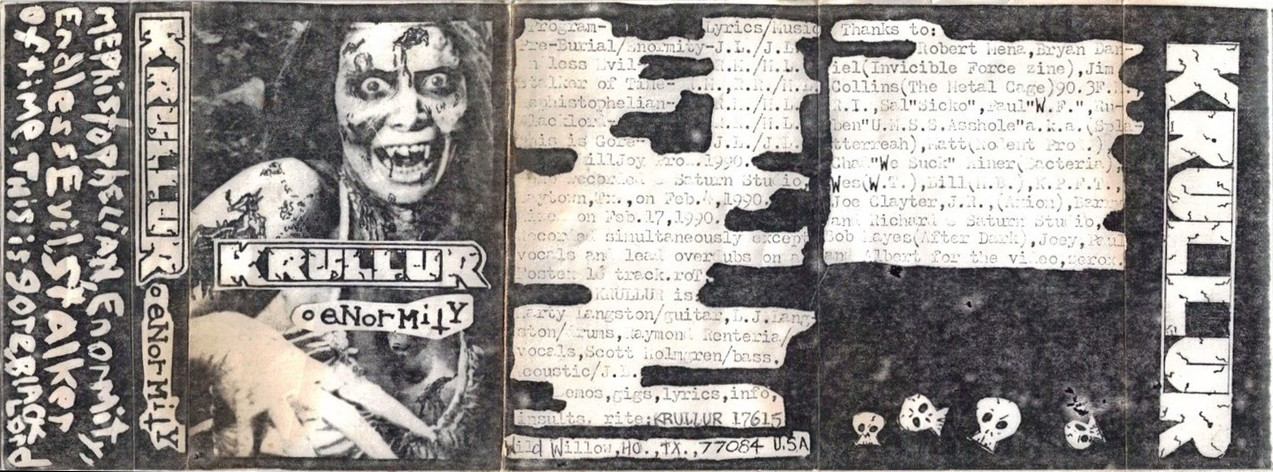 MEPHISTOPHELIAN, ENORMITY,
Endless Evil, StAlker
OF time. This is gore, BlAck Lord
KRULLUR
eNorMitY
KRULLUR
eNorMitY
Program- Lyrics/Music
Pre-Burial/Enormity-J.L./J.L.
less Evil- /M.L.
talker of Time- /M.L.
ephistophelian- /M.L.
lack Lord-
his is Gore-
illJoy 1990.
Recorded Saturn Studio,
aytown,Tx.,on Feb.4,1990.
on Feb.17,1990.
ecorded simultaneously except
vocals and lead overdubs on a
Fostex 16 track.roT
KRULLUR is:
arty Langston/guitar,L.J.Lang-
ston/drums,Raymond Renteria/
vocals,Scott Holmgren/bass.
coustic/J.L.
emos,gigs,lyrics,info,
insults, rite:KRULLUR 17615
Wild Willow,HO.,TX.,77084 U.SA
Thanks to:
Robert Mena,Bryan Dan-
iel(Invicible Force zine),Jim
Collins(The Metal Cage)90.3F.M.
R.I.,Sal"Sicko",Paul"W.F.",Ru-
ben"U.M.S.S.Asshole"a.k.a.(Spla
tterreah),Matt
"We Suck" Kiner(Bacteria),
Wes(W.T.),Bill(H.B.),K.P.F.T.,
Joe Clayter,J.R.,
and Richard Saturn Studio,
Bob Hayes(After Dark),Joey,Paul
and Albert for the video,xerox.
KRULLUR